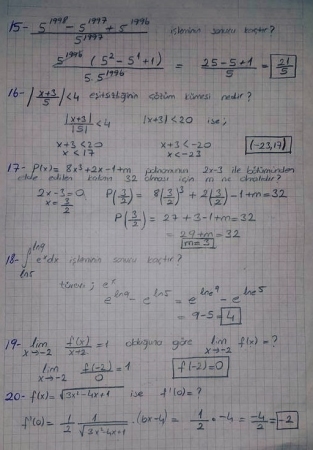 15- (5^1998 - 5^1997 + 5^1996) / 5^1997 işleminin sonucu kaçtır?
5^1996 (5^2 - 5^1 + 1) / 5.5^1996 = (25-5+1)/5 = 21/5
16- |(x+3)/5| < 4 eşitsizliğinin çözüm kümesi nedir?
|x+3|/|5| < 4   |x+3| < 20 ise;
x+3 < 20   x+3 < -20   (-23,17)
x < 17   x < -23
17- P(x) = 8x^3 + 2x - 1 + m polinomunun 2x-3 ile bölümünden
elde edilen kalanın 32 olması için m ne olmalıdır?
2x-3=0   P(3/2) = 8(3/2)^3 + 2(3/2) - 1 + m = 32
x = 3/2
P(3/2) = 27 + 3 - 1 + m = 32
= 29 + m = 32
m = 3
18- ∫_ln5^ln9 e^x dx işleminin sonucu kaçtır?
türevi; e^x
e^ln9 - e^ln5 = e^ln9 - e^ln5
= 9-5 = 4
19- lim x→-2 f(x)/(x+2) = 1 olduğuna göre lim x→-2 f(x) = ?
lim x→-2 f(-2)/0 = 1   f(-2) = 0
20- f(x) = √(3x^2 - 4x + 1) ise f'(0) = ?
f'(0) = 1/2 · 1/√(3x^2 - 4x + 1) · (6x-4) = 1/2 · -4 = -4/2 = -2